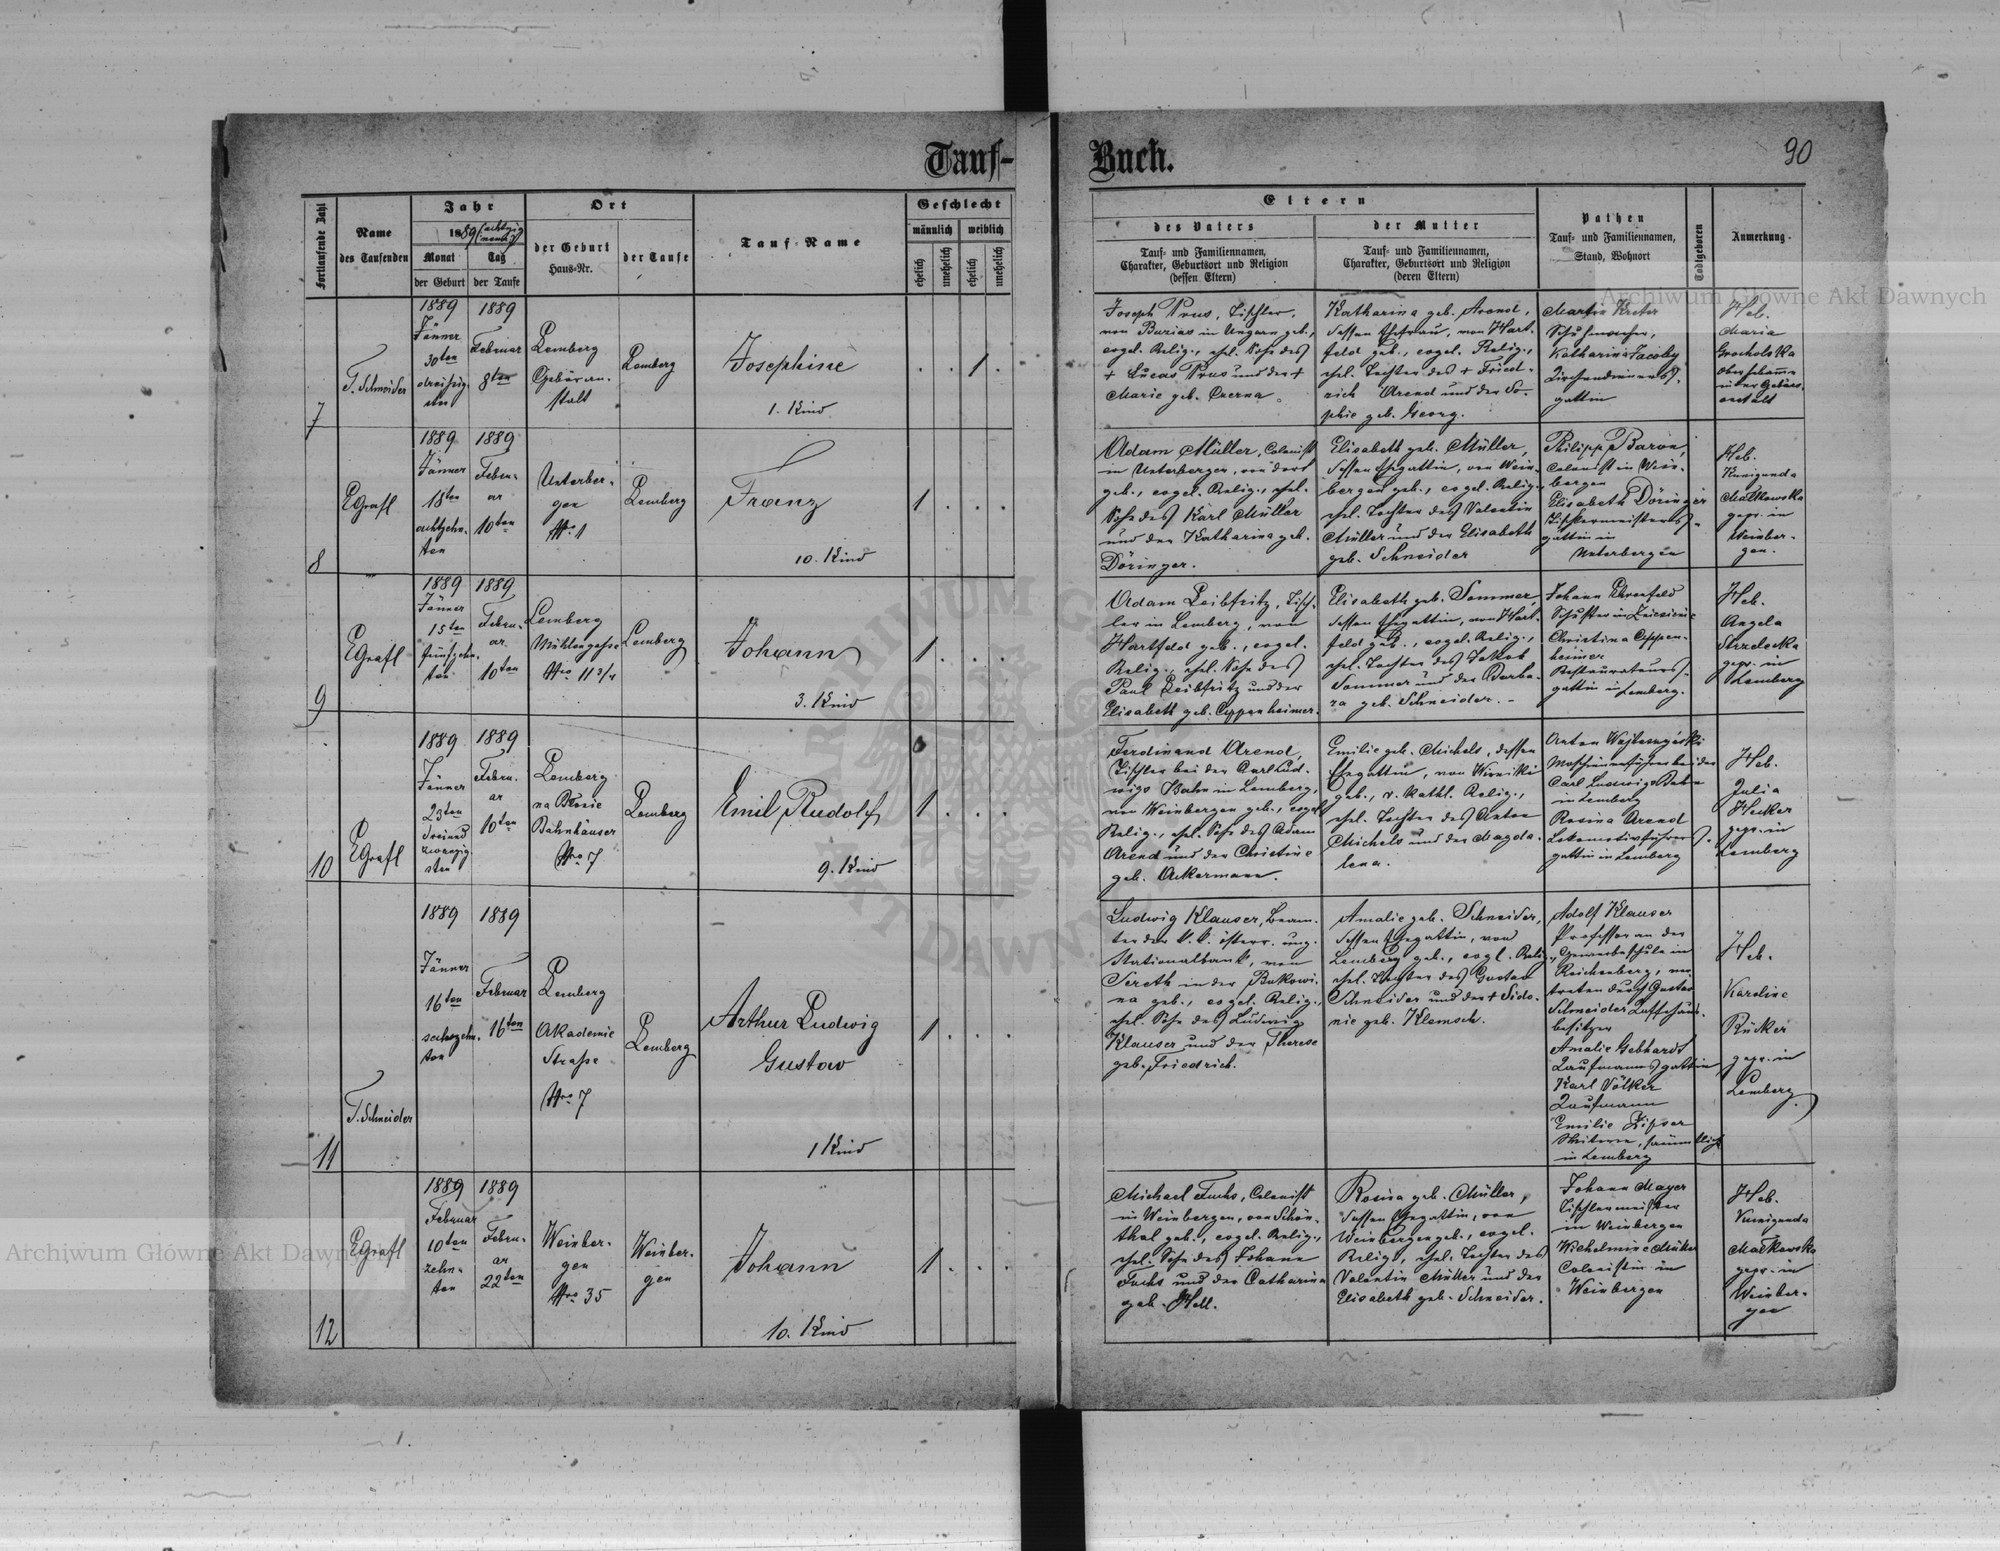 Tauf-
Buch.
90
Fortlaufende Zahl
Name
des Taufenden
Jahr
1889 (achtzig
neun)
Monat
Tag
der Geburt
der Taufe
Ort
der Geburt
Haus-Nr.
der Taufe
Tauf-Name
Geschlecht
männlich
weiblich
ehelich
unehelich
ehelich
unehelich
Eltern
des Vaters
Tauf- und Familiennamen,
Charakter, Geburtsort und Religion
(dessen Eltern)
der Mutter
Tauf- und Familiennamen,
Charakter, Geburtsort und Religion
(deren Eltern)
Pathen
Tauf- und Familiennamen,
Stand, Wohnort
Todtgeboren
Anmerkung.
7
T. Schneider
1889
Jänner
30ten
dreißig-
1889
Februar
8ten
Lemberg
Gebäran-
stalt
Lemberg
Josephine
1. Kind
. . 1 .
Joseph Prus, Tischler,
von Burias in Ungarn geb.,
evgel. Relig., ehel. Sohn des
+ Lucas Prus und der +
Marie geb. Czerna.
Katharina geb. Arend,
dessen Ehefrau, von Hart-
feld geb., evgel. Relig.,
ehel. Tochter des + Fried-
rich Arend und der So-
phie geb. Georg.
Martin Kreter
Schuhmacher,
Katharina Jacoby
Kirchendieners-
gattin
Heb.
Maria
Grocholska
Oberhebamme
in der Gebär-
anstalt
8
EGrafl
1889
Jänner
18ten
achtzehn-
ten
1889
Febru-
ar
10ten
Unterber-
gen
Nro 1
Lemberg
Franz
10. Kind
1 . . .
Adam Müller, Colonist
in Unterbergen, von dort
geb., evgel. Relig., ehel.
Sohn des Karl Müller
und der Katharina geb.
Döringer.
Elisabeth geb. Müller,
dessen Ehegattin, von Wein-
bergen geb., evgel. Relig.,
ehel. Tochter des Valentin
Müller und der Elisabeth
geb. Schneider
Philipp Baron,
Colonist in Wein-
bergen
Elisabeth Döringer
Tischlermeisters-
gattin in
Unterbergen
Heb.
Kunigunda
Małkowska
gepr. in
Weinber-
gen.
9
EGrafl
1889
Jänner
15ten
fünfzehn-
ten
1889
Febru-
ar
10ten
Lemberg
Mühlengasse
Nro 11 3/4
Lemberg
Johann
3. Kind
1 . . .
Adam Leibfritz, Tisch-
ler in Lemberg, von
Hartfeld geb., evgel.
Relig., ehel. Sohn des
Paul Leibfritz und der
Elisabeth geb. Oppenheimer.
Elisabeth geb. Sommer,
dessen Ehegattin, von Hart-
feld geb., evgel. Relig.,
ehel. Tochter des Jakob
Sommer und der Barba-
ra geb. Schneider. -
Johann Ehrenfeld
Schuster in Zniesienie
Christina Oppen-
heimer
Restaurateurs-
gattin in Lemberg.
Heb.
Angela
Strzelecka
gepr. in
Lemberg
10
EGrafl
1889
Jänner
23ten
dreiund
zwanzig-
sten
1889
Febru-
ar
10ten
Lemberg
na Błonie
Bahnhäuser
Nro 7
Lemberg
Emil Rudolf
9. Kind
1 . . .
Ferdinand Arend,
Tischler bei der Carl Lud-
wigs Bahn in Lemberg,
von Weinbergen geb., evgel.
Relig., ehel. Sohn des Adam
Arend und der Christine
geb. Ackermann.
Emilie geb. Michels, dessen
Ehegattin, von Winniki
geb., r. kathl. Relig.,
ehel. Tochter des Anton
Michels und der Magda-
lena.
Anton
Maschinenführer bei der
Carl Ludwigs Bahn
in Lemberg
Rosina Arend
Lokomotivführers-
gattin in Lemberg
Heb.
Julia
Huker
gepr. in
Lemberg
11
T. Schneider
1889
Jänner
16ten
sechzehn-
ten
1889
Februar
16ten
Lemberg
Akademie
Straße
Nro 7
Lemberg
Arthur Ludwig
Gustav
1 Kind
1 . . .
Ludwig Klauser, Beam-
ter der k. k. österr. ung.
Nationalbank, von
Sereth in der Bukowi-
na geb., evgel. Relig.,
ehel. Sohn des Ludwig
Klauser und der Therese
geb. Friedrich.
Amalie geb. Schneider,
dessen Ehegattin, von
Lemberg geb., evgl. Relig.,
ehel. Tochter des Gustav
Schneider und der + Sido-
nie geb. Klemsch.
Adolf Klauser
Professor an der
Gewerbeschule in
Reichenberg, ver-
treten durch Gustav
Schneider Kaffehaus-
besitzer
Amalie Gebhardt
Kaufmannsgattin,
Karl Völker
Kaufmann
Emilie Zipser
sämmtlich
in Lemberg
Heb.
Karoline
Rücker
gepr. in
Lemberg.
12
EGrafl
1889
Februar
10ten
zehn-
ten
1889
Febru-
ar
22ten
Weinber-
gen
Nro 35
Weinber-
gen
Johann
10. Kind
1 . . .
Michael Fuchs, Colonist
in Weinbergen, von Schön-
thal geb., evgel. Relig.,
ehel. Sohn des Johann
Fuchs und der Catharina
geb. Hell.
Rosina geb. Müller,
dessen Ehegattin, von
Weinbergen geb., evgel.
Relig., ehel. Tochter des
Valentin Müller und der
Elisabeth geb. Schneider.
Johann Mayer
Tischlermeister
in Weinbergen
Wilhelmine Müller
Colonistin in
Weinbergen
Heb.
Kunigunda
Małkowska
gepr. in
Weinber-
gen
Archiwum Główne Akt Dawnych
Archiwum Główne Akt Dawnych
ARCHIWUM GŁÓWNE AKT DAWNYCH